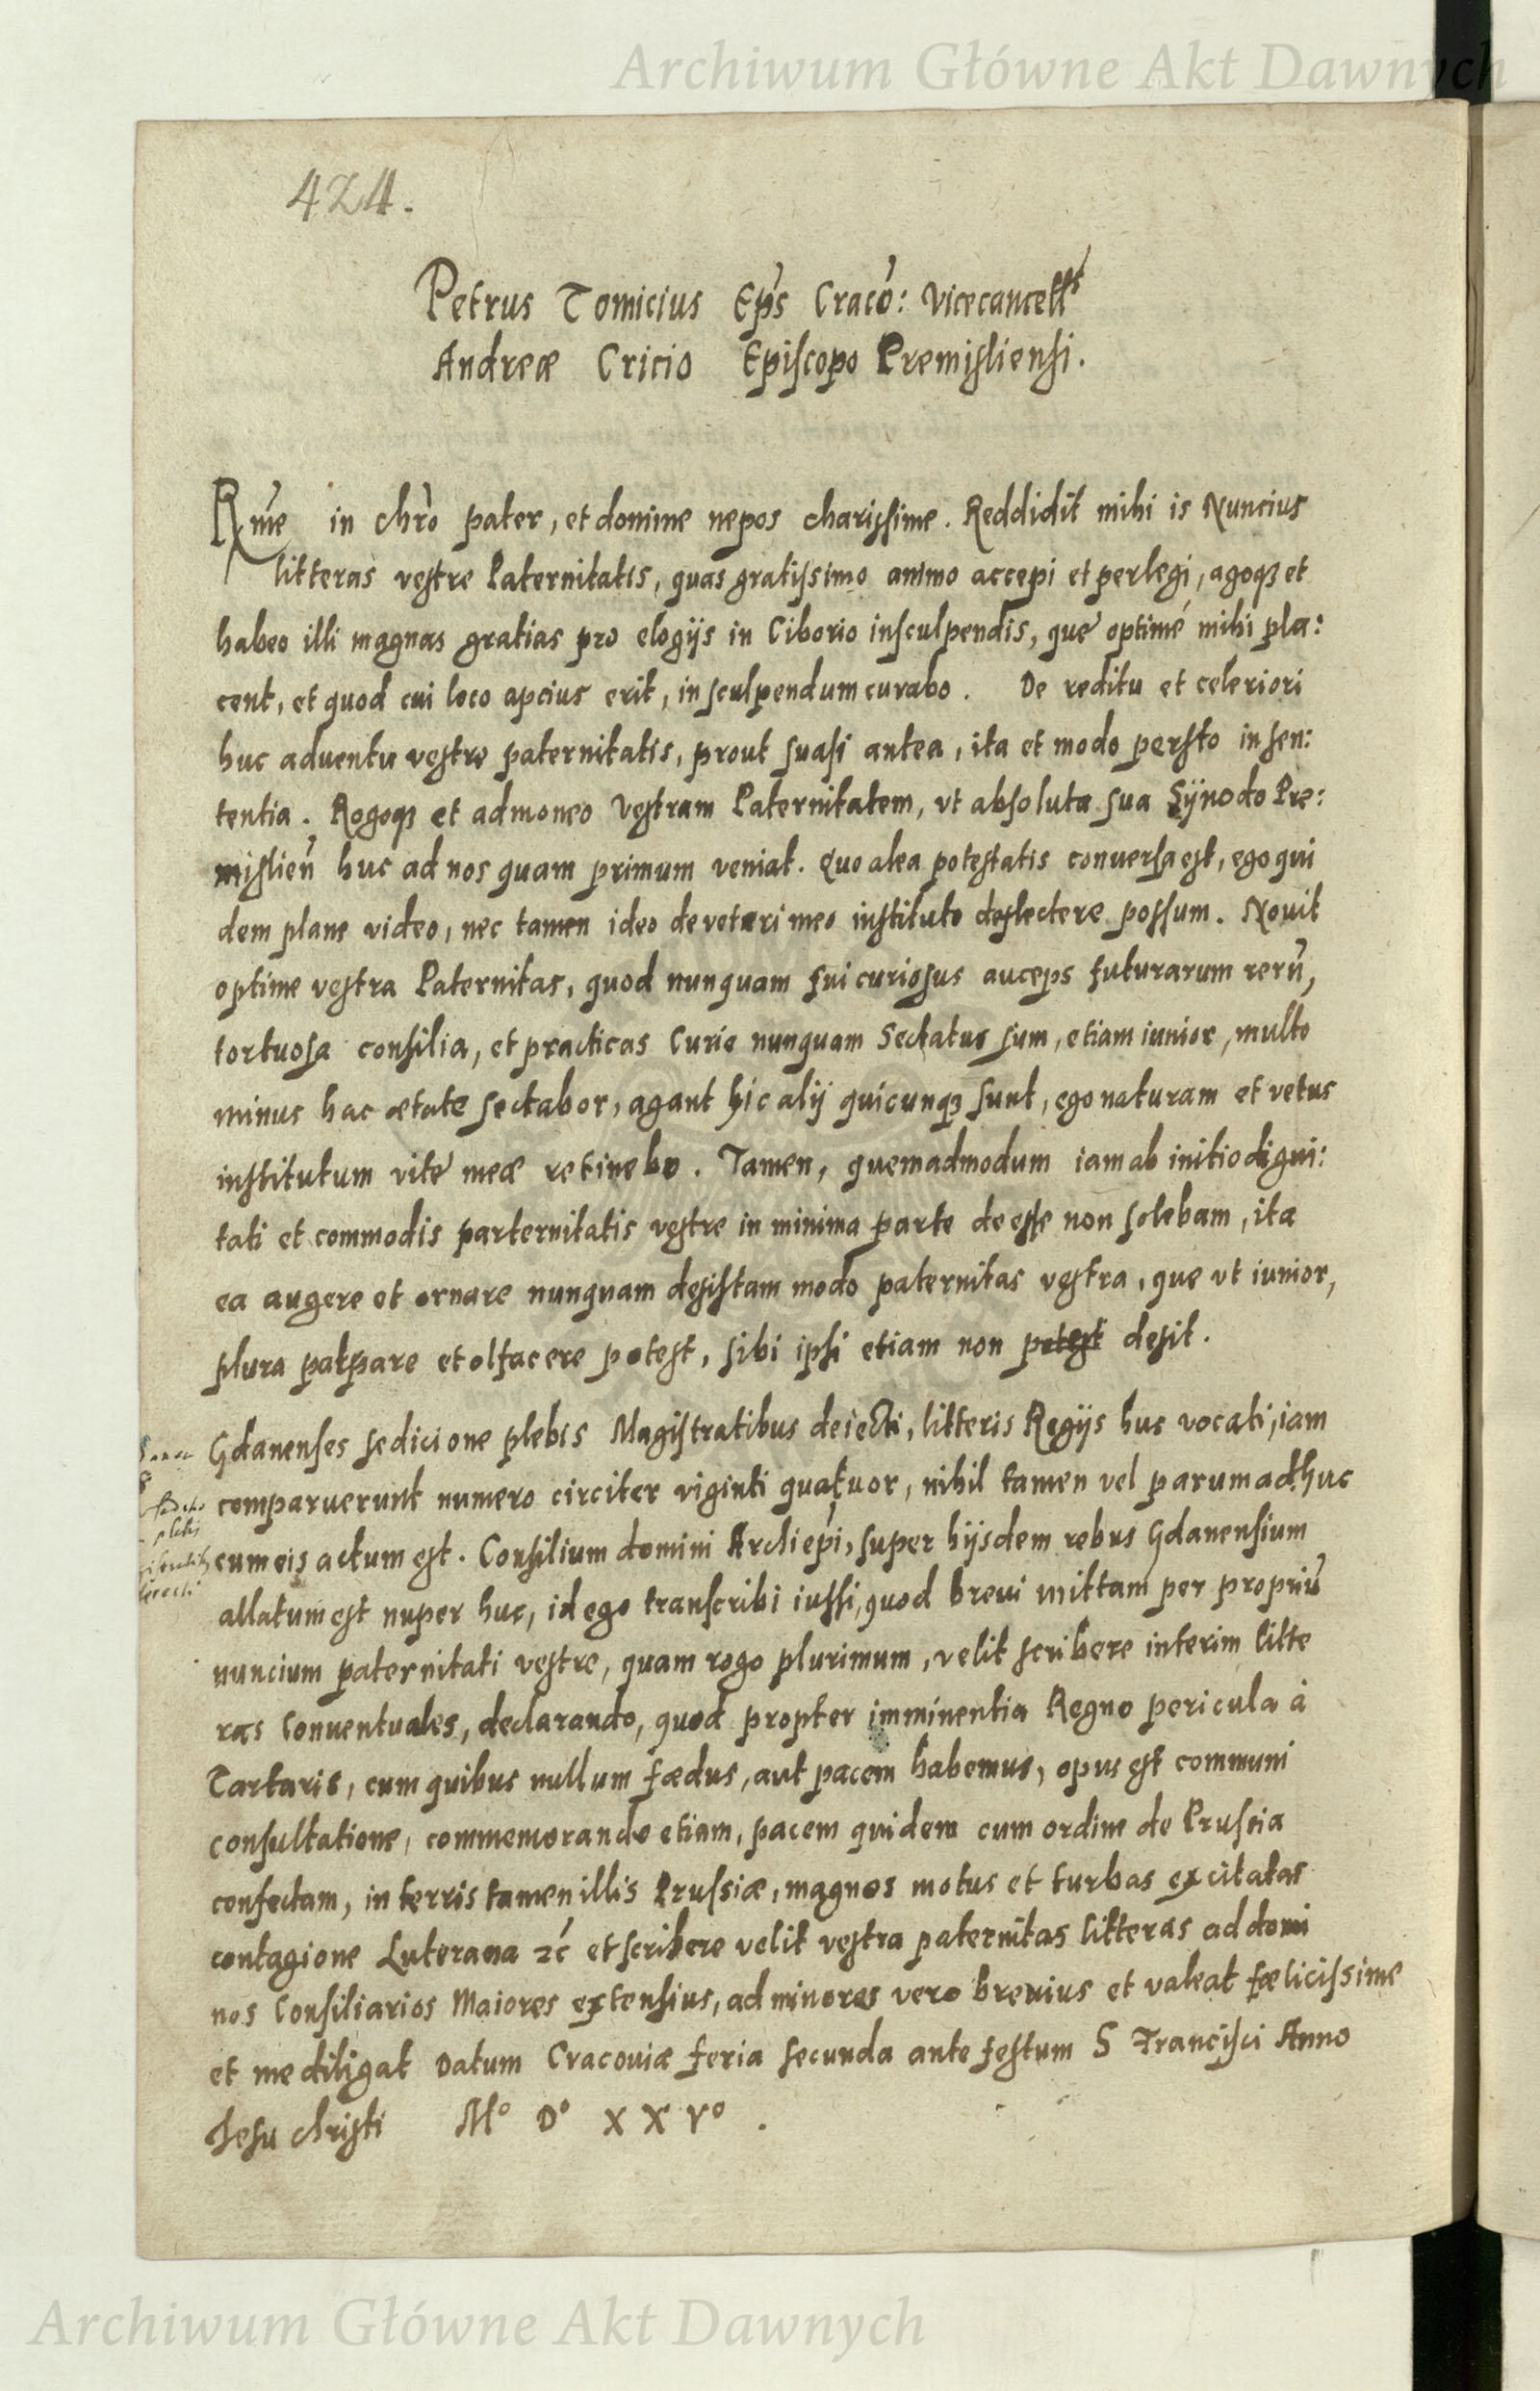 Archiwum Główne Akt Dawnych
424.
Petrus Tomicius Ep̃s Craco: Vicecancell̃s
Andreæ Cricio Episcopo Premisliensi.
Rm̃e in chr̃o pater, et domine nepos charissime. Reddidit mihi is Nuncius
litteras vestre Paternitatis, quas gratissimo animo accepi et perlegi, agoqꝫ et
habeo illi magnas gratias pro elogijs in Ciborio insculpendis, que optimé mihi pla:
cent, et quod cui loco apcius erit, insculpendum curabo. De reditu et celeriori
huc aduentu vestre paternitatis, prout suasi antea, ita et modo persto in sen:
tentia. Rogoqꝫ et admoneo Vestram Paternitatem, vt absoluta sua Sÿnodo Pre:
mislieñ huc ad nos quam primum veniat. Quo alea potestatis conuersa est, ego qui
dem plane video, nec tamen ideo de veteri meo instituto deflectere possum. Nouit
optime vestra Paternitas, quod nunquam fui curiosus auceps futurarum rerũ,
tortuosa consilia, et practicas Curie nunquam Sectatus sum, etiam iunior, multo
minus hac ætate sectabor, agant hic alij quicunqꝫ sunt, ego naturam et vetus
institutum vite meæ retinebo. Tamen, quemadmodum iam ab initio digni:
tati et commodis parternitatis vestre in minima parte deesse non solebam, ita
ea augere et ornare nunquam desistam modo paternitas vestra, que vt iunior,
plura palpare et olfacere potest, sibi ipsi etiam non potest desit.
Gdanenses sedicione plebis Magistratibus deiecti, litteris Regijs huc vocati, iam
comparuerunt numero circiter viginti quatuor, nihil tamen vel parum adhuc
plebis
cum eis actum est. Consilium domini Archiep̃i, super hijsdem rebus Gdanensium
allatum est nuper huc, id ego transcribi iussi, quod breui mittam per propriũ
nuncium paternitati vestre, quam rogo plurimum, velit scribere interim litte
ras Conuentuales, declarando, quod propter imminentia Regno pericula à
Tartaris, cum quibus nullum fœdus, aut pacem habemus, opus est communi
consultatione, commemorando etiam, pacem quidem cum ordine de Prussia
confectam, in terris tamen illis Prussiæ, magnos motus et turbas excitatas
contagione Luterana ꝛc̃ et scribere velit vestra paternitas litteras ad domi
nos Consiliarios Maiores extensius, ad minores vero breuius et valeat fœlicissime
et me diligat Datum Cracouiæ feria secunda ante festum S Francisci Anno
Jesu christi M° D° X X V° .
Archiwum Główne Akt Dawnych